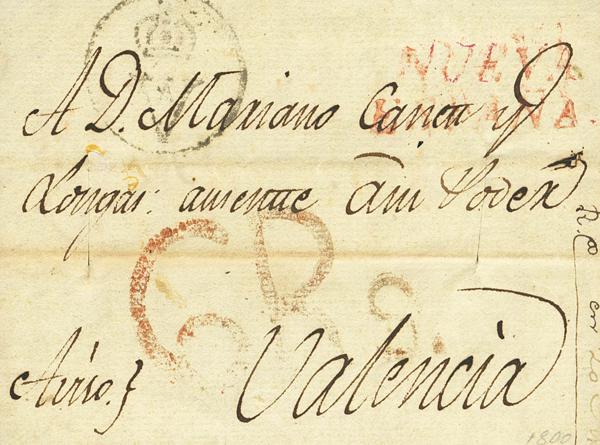 NUEVA
ESPAÑA.
A D. Mariano Canet y
Longas: ausente à su Poder
6 Rs.
Aviso.} Valencia
R.do en 20
1800